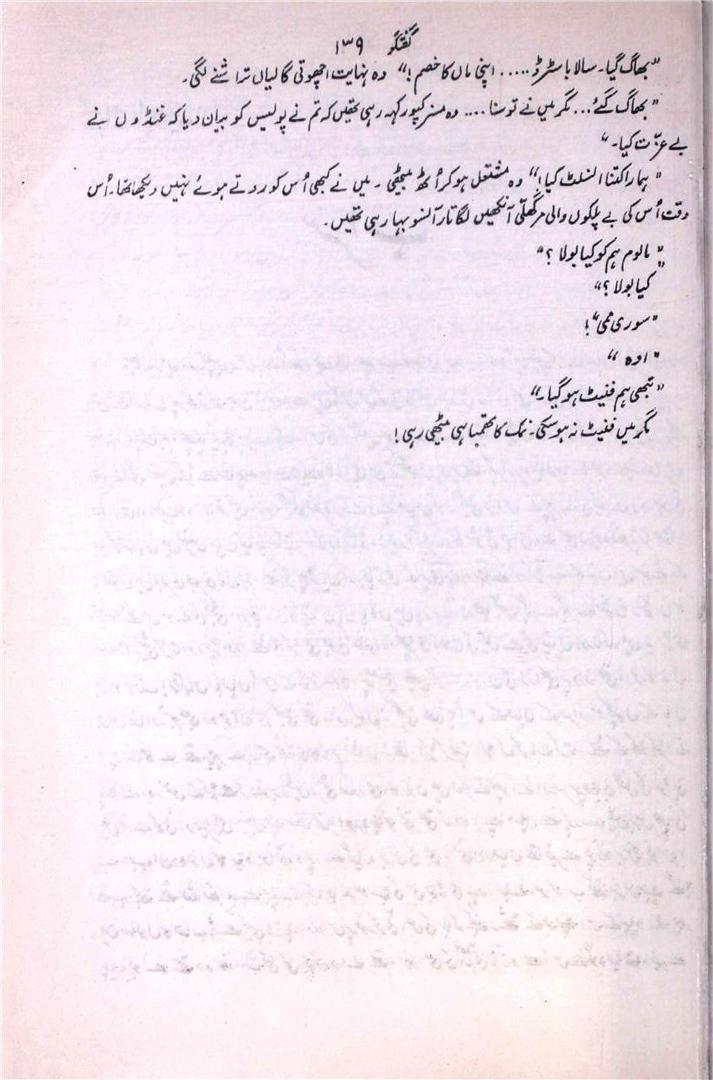 گفتگو ۱۳۹
"بھاگ گیا۔ سالا باسٹرڈ ..... اپنی ماں کا خصم!" وہ نہایت اچھوتی گالیاں تراشنے لگی۔
"بھاگ گئے ... مگر میں نے تو سنا .... وہ مسز کپور کہہ رہی تھیں کہ تم نے پولیس کو بیان دیا کہ غنڈوں نے
بے عزت کیا۔"
"ہمارا کتنا انسلٹ کیا!" وہ مشتعل ہو کر اُٹھ بیٹھی۔ میں نے کبھی اُس کو روتے ہوئے نہیں دیکھا تھا۔ اُس
وقت اُس کی بے پلکوں والی مرگھلّی آنکھیں لگاتار آنسو بہا رہی تھیں۔
"مالوم ہم کو کیا بولا ؟"
"کیا بولا ؟"
"سوری ممی"!
"اوہ"
"تبھی ہم فینٹ ہو گیا۔"
مگر میں فینٹ نہ ہو سکی۔ نمک کا تھمبا ہی بیٹھی رہی!